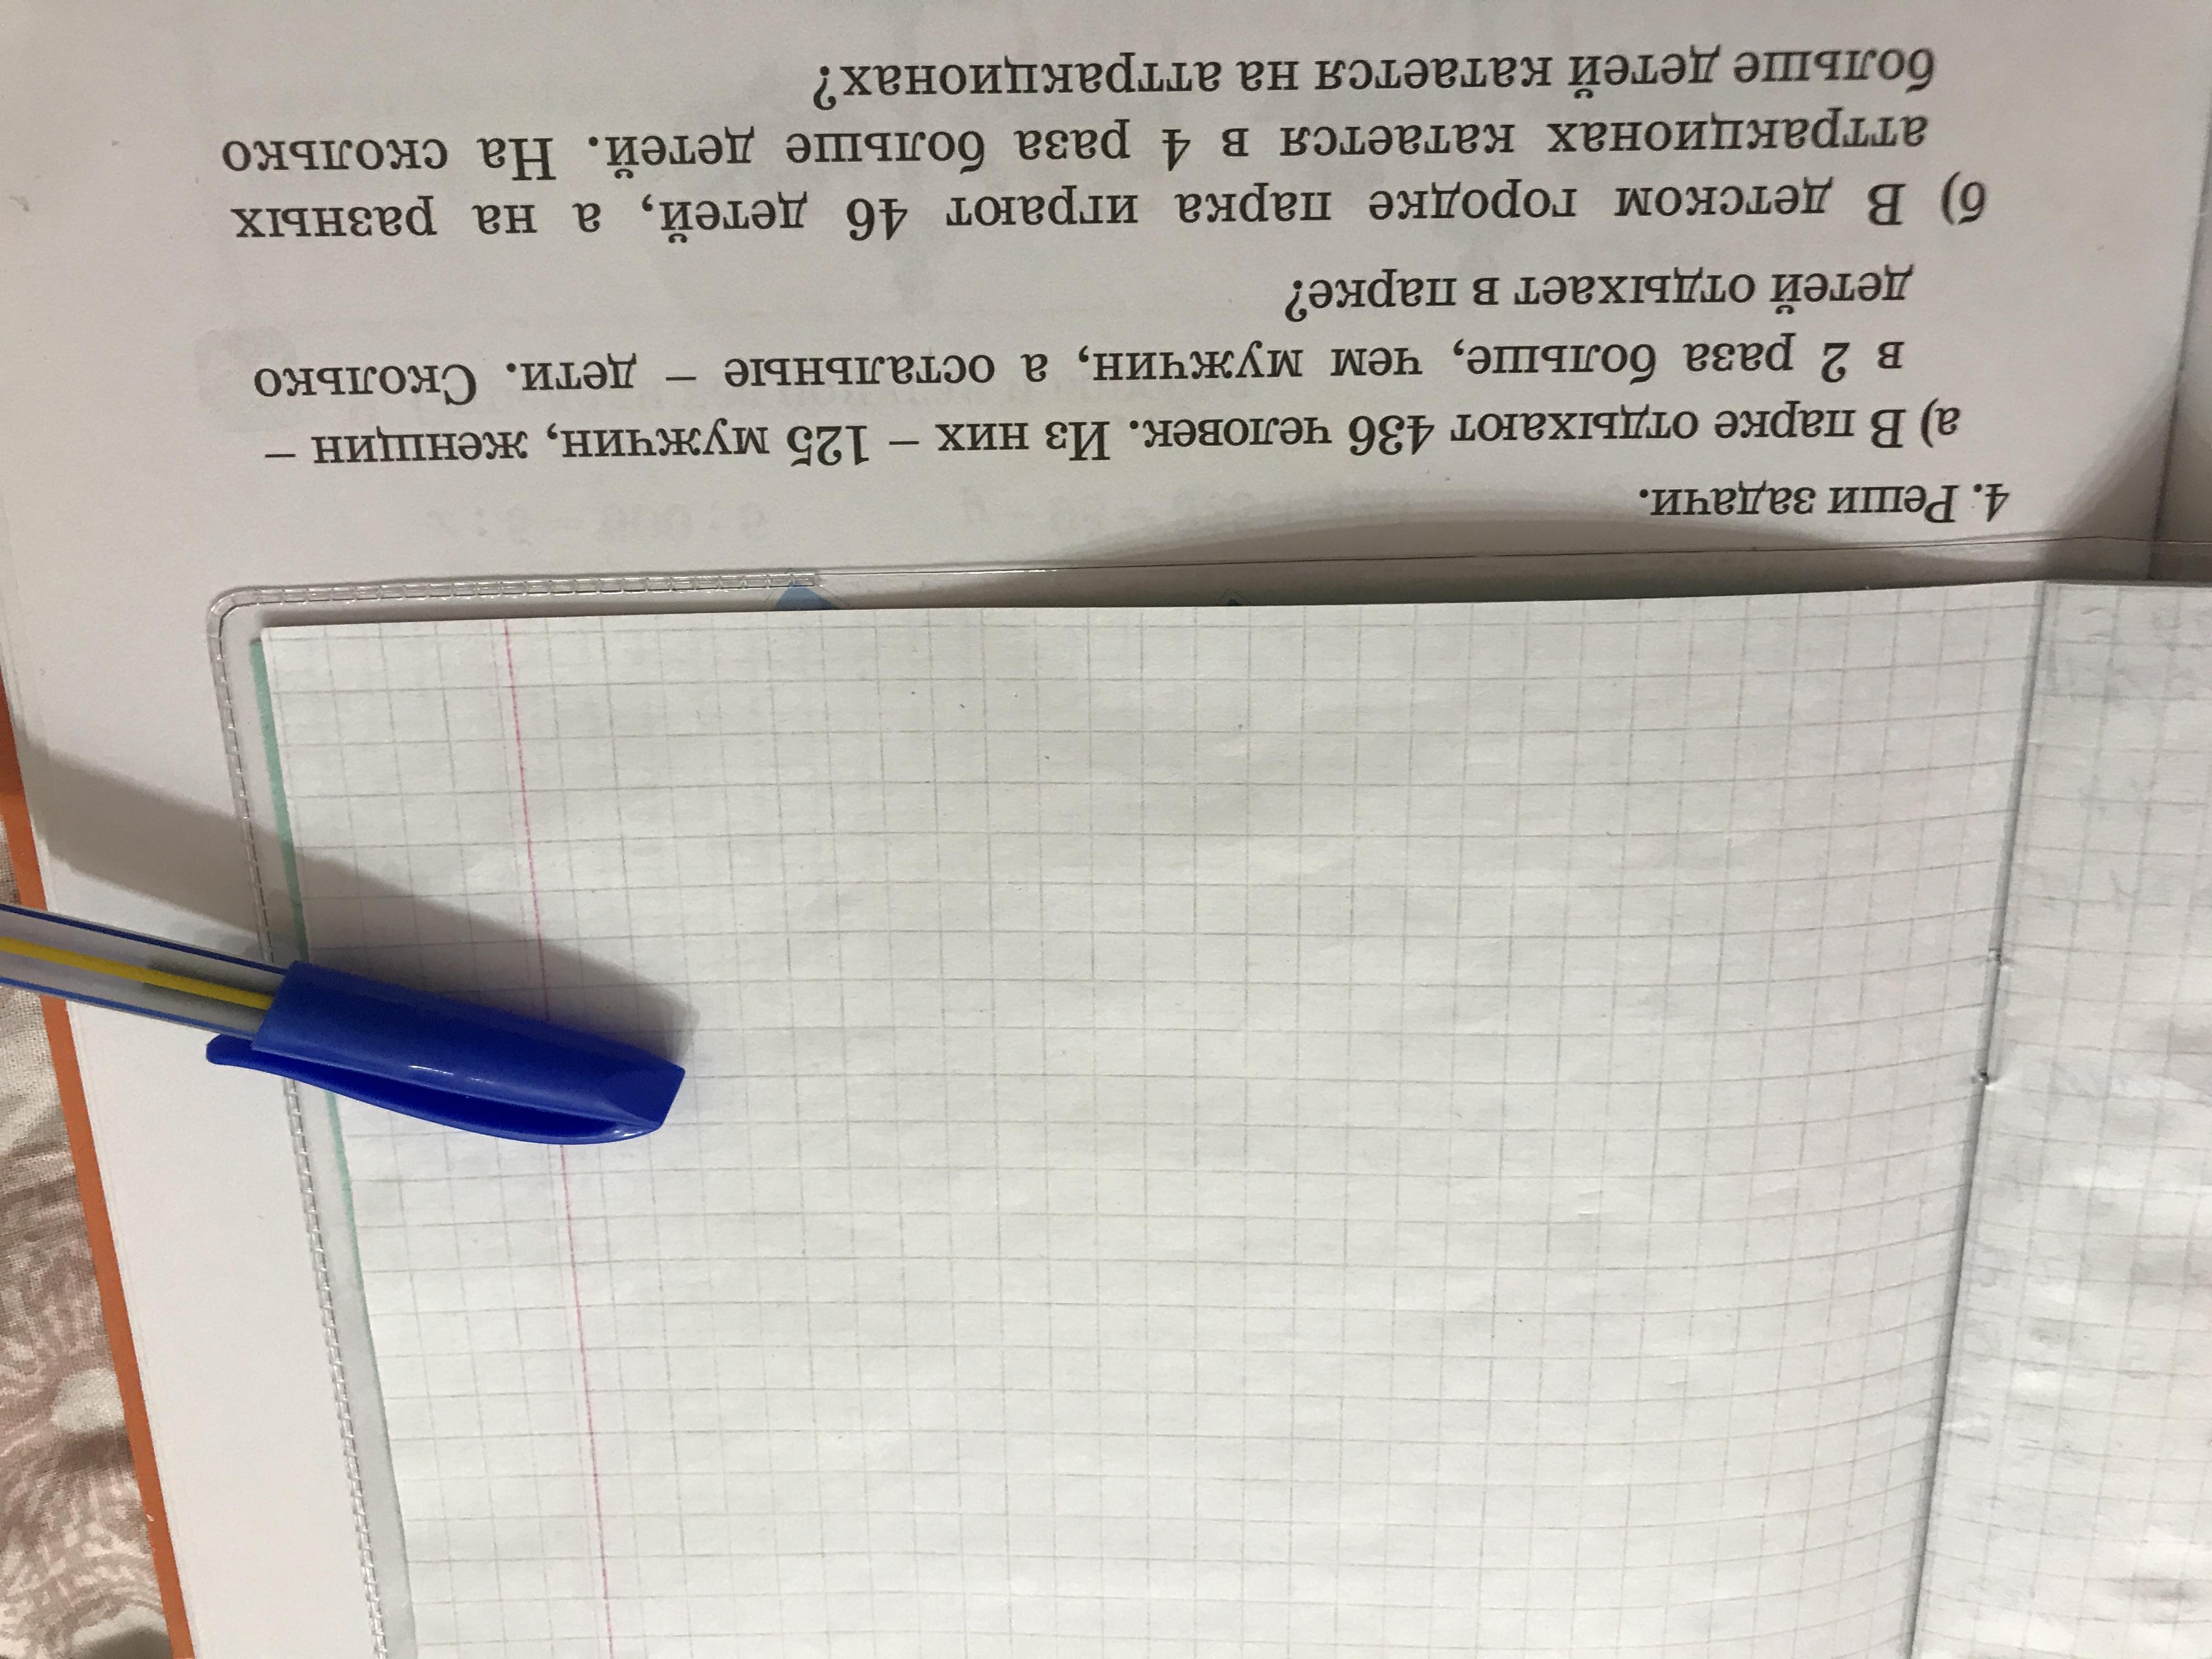 4. Реши задачи.
а) В парке отдыхают 436 человек. Из них – 125 мужчин, женщин –
в 2 раза больше, чем мужчин, а остальные – дети. Сколько
детей отдыхает в парке?
б) В детском городке парка играют 46 детей, а на разных
аттракционах катается в 4 раза больше детей. На сколько
больше детей катается на аттракционах?